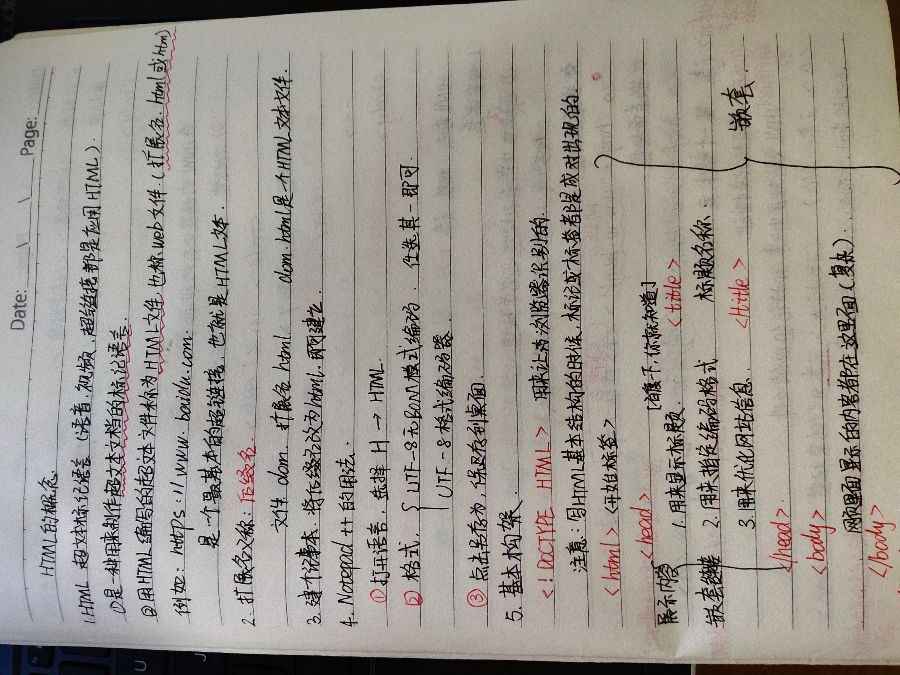 Date: \ \ Page:
HTML的概念
1.HTML 超文本标记语言 (语音、视频、超链接都是应用HTML)
①是一种用来制作超文本文档的标记语言
②用HTML编写的超文本文件称为HTML文件 也称web文件.(扩展名.html或htm)
例如: https://www.baidu.com
是一个最基本的超链接,也就是HTML文本
2.扩展名又称:后缀名
文件.dom 扩展名 html dom.html是一个HTML文本文件.
3.建个记事本,将后缀名改为html,
4.Notepad++的用法
①打开语言,选择 H → HTML
②格式, { UTF-8无BOM格式编码. 任选其一即可
UTF-8格式编码器
③点击另存为,保存到桌面
5.基本构架.
<!DOCTYPE HTML> 用来让浏览器识别的.
注意:写HTML基本结构的时候,标记或标签都是成对出现的.
<html> <开始标签>
<head>
展示内容 1.用来显示标题. <title>
2.用来指定编码格式 标题名称.
3.用来优化网站信息. </title>
</head>
<body>
网页里面显示的内容都在这里面(复杂).
</body>
嵌套